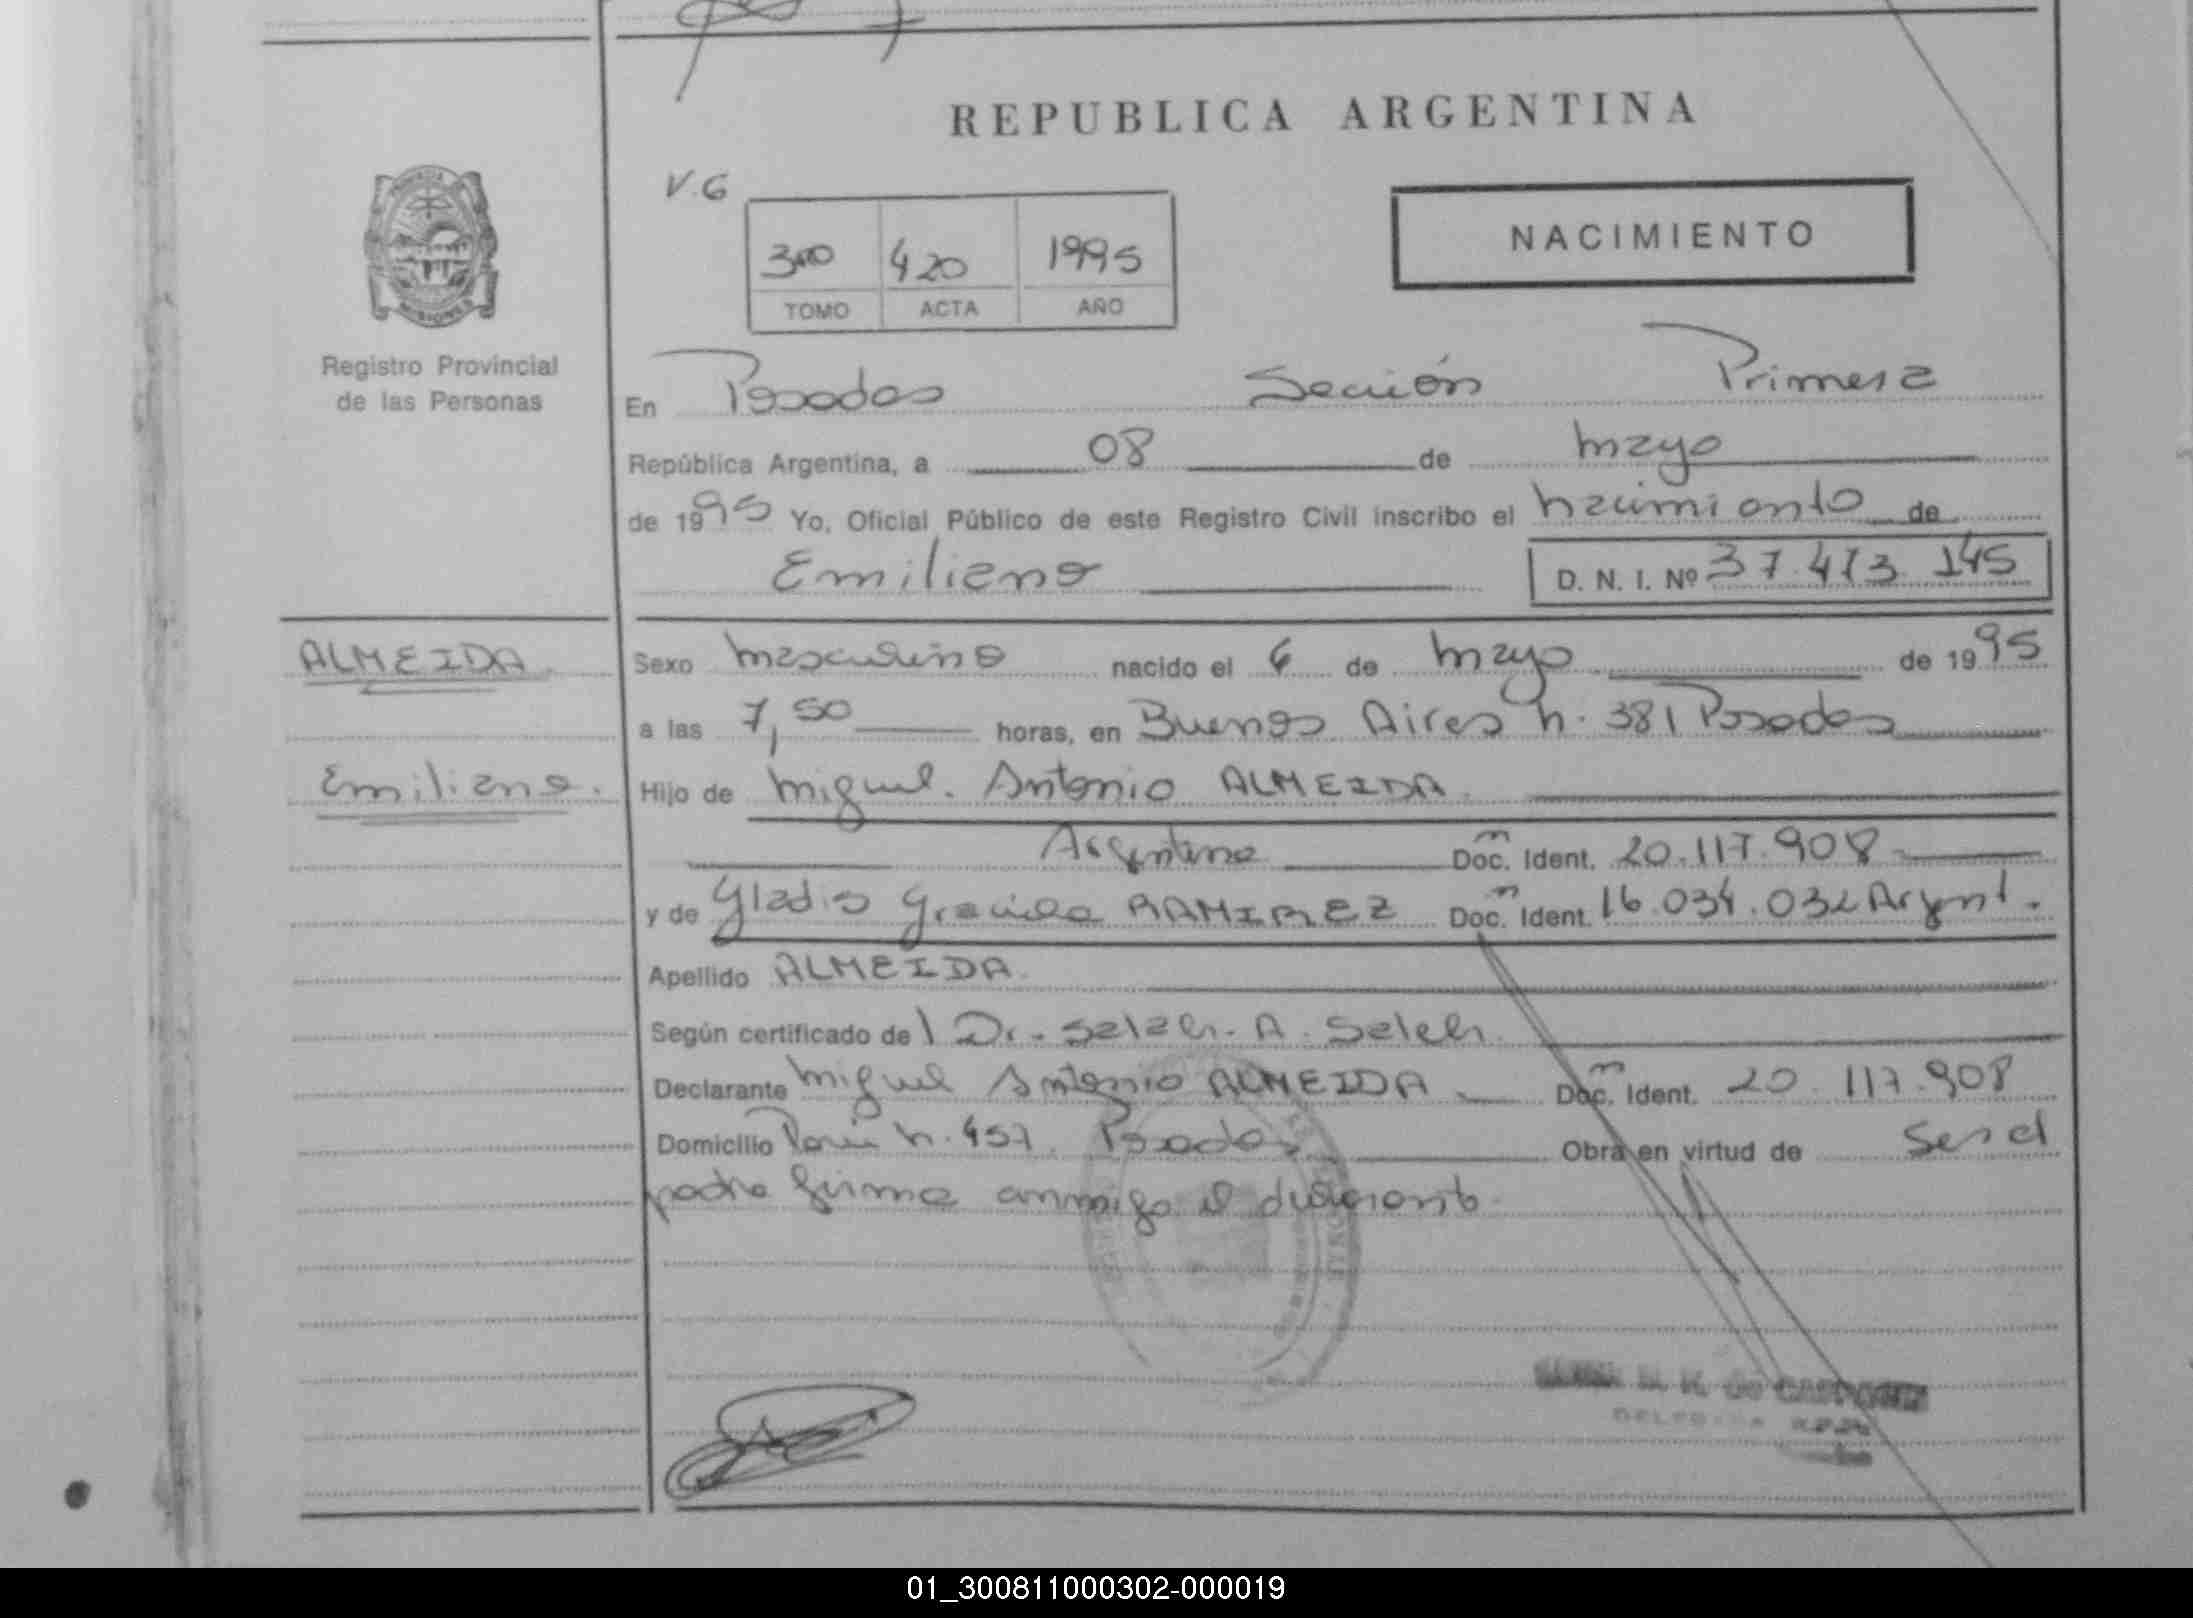 REPUBLICA ARGENTINA
PROVINCIA
MISIONES
Registro Provincial
de las Personas
V.6
3ro 420 1995
TOMO ACTA AÑO
NACIMIENTO
En Posadas Sección Primera
República Argentina, a 08 de mayo
de 1995 Yo, Oficial Público de este Registro Civil inscribo el nacimiento de
Emiliano D. N. I. Nº 37.413.145
ALMEIDA
Emiliano.
Sexo masculino nacido el 6 de mayo de 1995
a las 7,50 horas, en Buenos Aires n. 381 Posadas
Hijo de Miguel Antonio ALMEIDA
Argentino Doc. Ident. 20.117.908
y de Gladis Graciela RAMIREZ Doc. Ident. 16.034.032 Argent.
Apellido ALMEIDA
Según certificado de Dr. Salah A. Saleh
Declarante Miguel Antonio ALMEIDA Doc. Ident. 20.117.908
Domicilio n. 457. Posadas Obra en virtud de Ser el
padre firma conmigo el declarante
M. K. de
DELEGADA
01_300811000302-000019